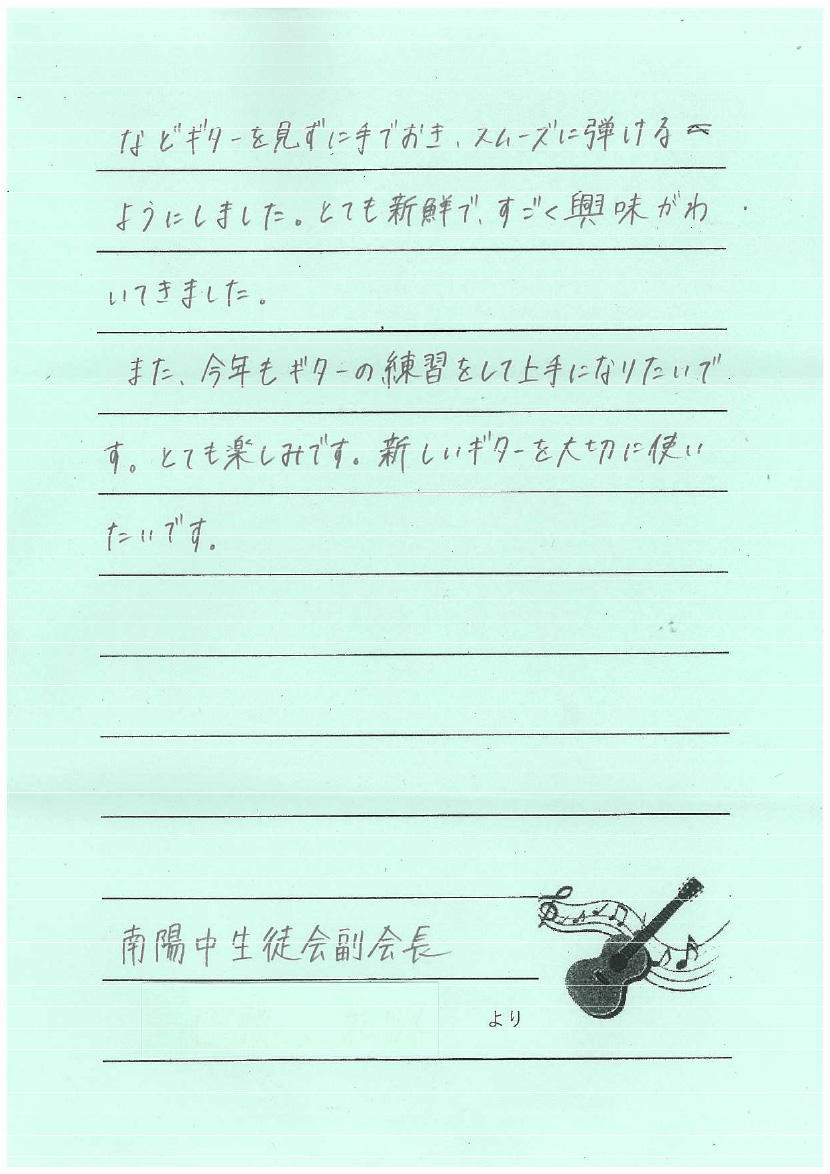 などギターを見ずに手でおき、スムーズに弾ける
ようにしました。とても新鮮で、すごく興味がわ
いてきました。
また、今年もギターの練習をして上手になりたいで
す。とても楽しみです。新しいギターを大切に使い
たいです。
南陽中生徒会副会長
より